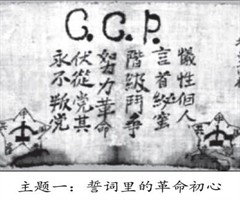 C.C.P.
犧牲個人
言首泌蜜
階級鬥争
努力革命
伏從党其
永不叛党
主题一：誓词里的革命初心